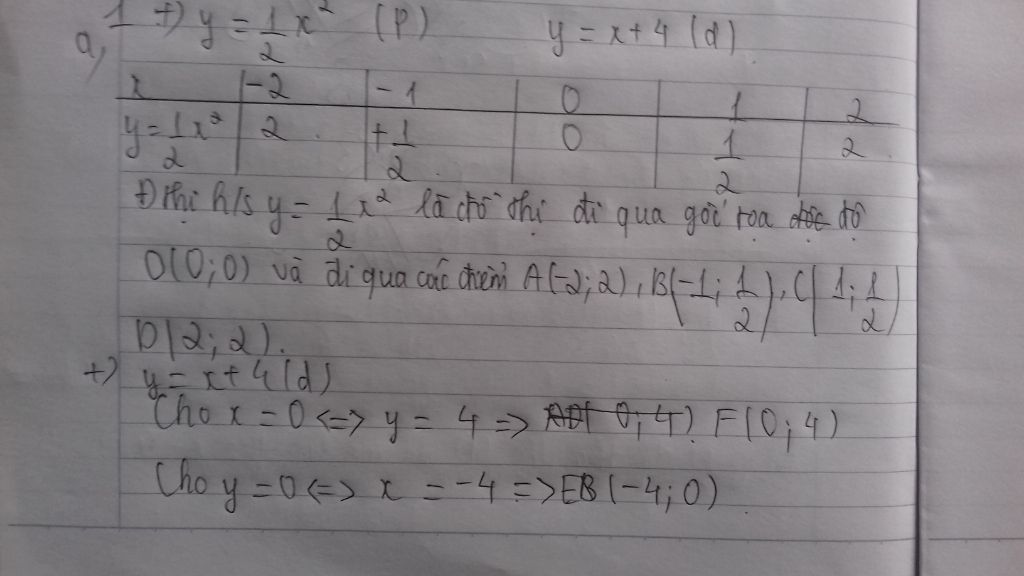 1 +) y = 1/2 x² (P) y = x+4 (d)
a,
x -2 -1 0 1 2
y = 1/2 x² 2 +1/2 0 1/2 2
Đ thị h/s y = 1/2 x² là đồ thị đi qua gốc toạ độ
O(0;0) và đi qua các điểm A(-2;2), B(-1; 1/2), C(1; 1/2)
D(2;2).
+) y = x+4 (d)
Cho x = 0 <=> y = 4 => F(0;4)
Cho y = 0 <=> x = -4 => EB(-4;0)